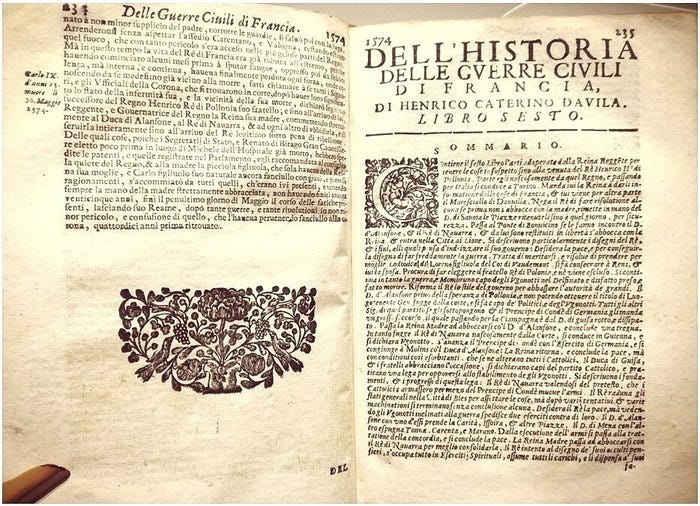 234
Delle Guerre Civili di Francia.
1574
nato à non minor supplicio del padre, corrotte le guardie, si salvò poi con la fuga.
Arrenderonsi senza aspettar l'assedio Carentano, e Valogna, restando
quel fuoco, che con tanto pericolo s'era acceso nelle più
Mà in questo tempo la vita del Rè di Francia era già ridotta all'estremo,
havendo cominciato alcuni mesi prima à sputar sangue, oppresso poi da febre
lenta, mà interna, e continua, haveva finalmente perduta ogni forza, onde
noscendo da se medesimo già vicino alla morte, fatti chiamare à se
gi, e gli Ufficiali della Corona, che si trovarono in corte, dopò haver loro
to lo stato della infermità sua, e la vicinità della sua morte, dichiarò
successore del Regno Henrico Rè di Pollonia suo fratello; e fino all'arrivo di
Reggente, e Governatrice del Regno la Reina sua madre, commettendo
mente al Duca di Alansone, al Rè di Navarra, & ad ogni altro di ubbidirla, e di
servirla interamente fino all'arrivo del Rè legitimo sotto pena di ribellione.
Delle quali cose, poiche i Segretarij di Stato, e Renato di Birago Gran Cancel-
liere eletto poco prima in luogo di Michele dell'Hospitale già morto, hebbero
dite le patenti, e quelle registrate nel Parlamento, egli raccomandò
la quiete del Regno, & alla madre la picciola figliuola, che sola haveva della Rei-
na sua moglie, e Carlo figliuolo suo naturale ancora fanciullo con gravi, e
ragionamenti, s'accommiatò da tutti quelli, ch'erano ivi presenti, tenendo
sempre la mano della madre strettamente abbracciata, non havendo finiti
venticinque anni, finì il penultimo giorno di Maggio il corso delle fatiche
senti, lasciando suo Reame, dopò tante guerre, e tante rivolutioni in non mi-
nor pericolo, e confusione di quello, che l'haveva pervenendo fanciullo alla co-
rona, quattordici anni prima ritrovato.
Carlo IX.
d'anni 25.
muore li
30. Maggio
1574.
DEL
1574
235
DELL'HISTORIA
DELLE GVERRE CIVILI
DI FRANCIA,
DI HENRICO CATERINO DAVILA.
LIBRO SESTO.
SOMMARIO.
Contiene il sesto Libro l'arti adoperate dalla Reina Reggẽte per
tenere le cose in suspetto sino alla venuta del Rè Henrico II. di
Pollonia. Parte egli nascosamente da quel Regno, e passando
per Italia si conduce à Torino. Manda ivi la Reina à darli in-
formatione delle cose di Francia, & ivi viene per altra parte
il Marescial di Danvilla. Nega il Rè di fare risolutione al-
cuna se prima non s'abbocca con la madre, rimette in mano del
D. di Savoia le Piazze ritenuteli sino à quel giorno, per sicu-
rezza. Passa al Ponte di Bonvicino se le fanno incontro il D.
d'Alansone, & il Rè di Navarra, & da lui sono restituiti in libertà s'abbocca con la
Reina & entra nella Città di Lione. Si descrivono particolarmente i disegni del Rè,
e i fini, alli quali pensa d'indirizzare il suo governo: Desidera la pace, e per conseguir-
la disegna di far freddamente la guerra. Tratta di maritarsi, e risolve di prendere per
moglie Lodovica di Loreno figliuola del Conte di Vaudemont. si fà consecrare à Rens, et
ivi la sposa. Procura di far eleggere il fratello Rè di Polonia, e nò viene escluso. Si conti-
nua in tanto la guerra, e Mombruno capo degli Vgonotti nel Delfinato è disfatto preso, e
fatto morire. Riforma il Rè lo stile del governo per abbassare l'autorità de grandi. Il
D. d'Alansone privo della speranza di Pollonia, e non potendo ottenere il titolo di Luo-
gotenente Generale fugge dalla corte, e si fà capo de Politici, e degl'Vgonotti. Tutti gli altri
Sig. di quel partito se gli sottopongono. E il Principe di Conde di Germania gli manda
un grosso soccorso, il quale passando per la Campagna è dal D. di guisa rotto, e disper-
so. Passa la Reina Madre ad abboccarsi col D. d'Alansone, e conclude una tregua.
In tanto fugge il Rè di Navarra nascosamente dalla Corte, si conduce in Guienna, e
si dichiara Vgonotto. S'avanza il Principe di Conde con l'Esercito di Germania, e si
congiunge à Molins col Duca d'Alansone: La Reina ritorna, e conclude la pace, mà
con conditioni così esorbitanti, che se ne alterano tutti i Cattolici. Il Duca di Guisa,
& i fratelli abbracciano l'occasione, si dichiarano capi del partito Cattolico, e pra-
ticano una lega per opporsi allo stabilimento de gli Vgonotti. Si descrivono i fonda-
menti, & i progressi di questa lega. Il Rè di Navarra valendosi del pretesto, che i
Cattolici s'armassero per mezo del Principe di Condé muove l'armi. Il Rè raduna gli
stati generali nella Città di Bles per assettare le cose, mà dopò varij tentativi, & varie
machinationi si terminano senza conclusione alcuna. Desidera il Rè la pace, mà vedendo-
gli Vgonotti inclinati alla guerra spedisce due eserciti contra di loro. Il D. d'Alan-
sone con uno d'essi prende la Carità, Issoira, & altre Piazze. Il D. di Mena con l'al-
tro espugna Tonai, Carenta, e Marano. Dalla esecutione dell'armi si passa alla trat-
tatione della concordia, e si conclude la pace. La Reina Madre passa ad abboccarsi con
il Rè di Navarra per meglio consolidarla. Il Rè intento al disegno de' suoi occulti pen-
sieri, s'occupa tutto in Esercitij Spirituali, assume tutti li carichi, e li dispensa à' suoi
fa-